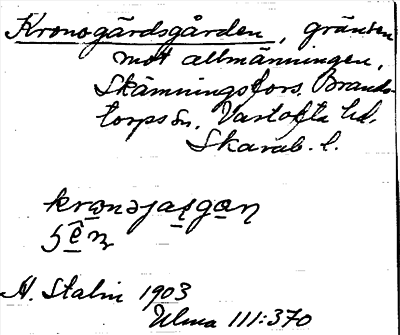 Kronogärdsgården, gränsen
mot allmänningen,
Skämningsfors. Brands-
torps sn. Vartofta hd.
Skarab. l.
kronəja
A. Stalin 1903
Ulma 111:370